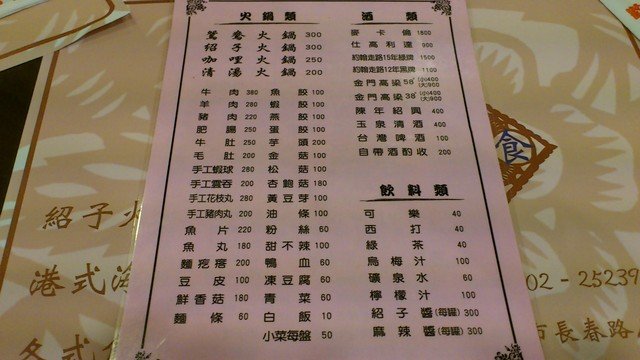 火鍋類
鴛鴦火鍋 300
紹子火鍋 300
咖哩火鍋 250
清湯火鍋 200
牛肉 380 魚餃 100
羊肉 240 蝦餃 100
豬肉 220 燕餃 100
肥腸 250 蛋餃 100
牛肚 250 芋頭 200
毛肚 200 金菇 100
手工蝦球 280 松菇 100
手工雲吞 200 杏鮑菇 180
手工花枝丸 200 黃豆芽 100
手工豬肉丸 200 油條 100
魚片 220 粉絲 60
魚丸 180 甜不辣 100
麵疙瘩 200 鴨血 60
豆皮 100 凍豆腐 60
鮮香菇 180 青菜 60
麵條 60 白飯 10
小菜每盤 50
酒類
麥卡倫 1800
仕高利達 900
約翰走路15年綠牌 1500
約翰走路12年黑牌 1100
金門高粱58° (小)400 (大)900
金門高粱38° (小)400 (大)900
陳年紹興 400
玉泉清酒 400
台灣啤酒 100
自帶酒酌收 200
飲料類
可樂 40
西打 40
綠茶 40
烏梅汁 100
礦泉水 60
檸檬汁 100
紹子醬(每罐) 300
麻辣醬(每罐) 300
食
紹子火
港式海
各式
02-25239
市長春路